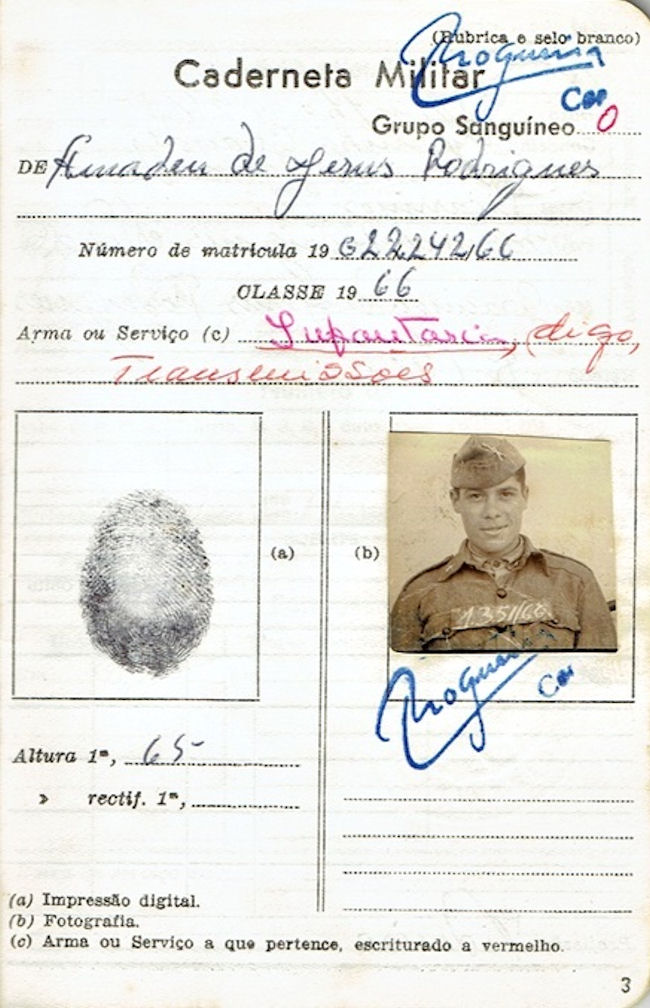 (Rubrica e selo branco)
Caderneta Militar
Grupo Sanguíneo O
DE Amadeu de Jesus Rodrigues
Número de matrícula 19 G22242/66
CLASSE 19 66
Arma ou Serviço (c) Infantaria, digo,
Transmissões
(a)
(b)
Altura 1ᵐ, 65
» rectif. 1ᵐ,
(a) Impressão digital.
(b) Fotografia.
(c) Arma ou Serviço a que pertence, escriturado a vermelho.
3